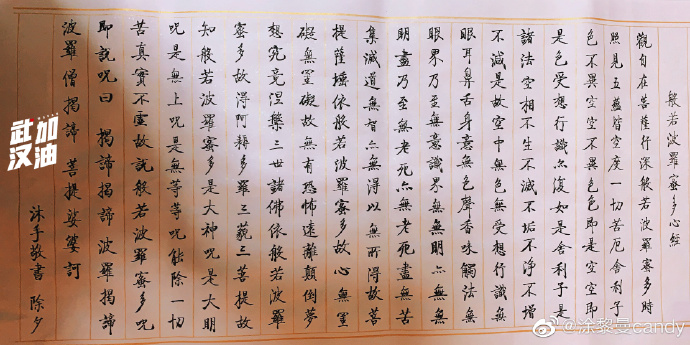 般若波羅蜜多心經
觀自在菩薩行深般若波羅蜜多時
照見五蘊皆空度一切苦厄舍利子
色不異空空不異色色即是空空即
是色受想行識亦復如是舍利子是
諸法空相不生不滅不垢不净不增
不減是故空中無色無受想行識無
眼耳鼻舌身意無色聲香味觸法無
眼界乃至無意識界無無明亦無無
明盡乃至無老死亦無老死盡無苦
集滅道無智亦無得以無所得故菩
提薩埵依般若波羅蜜多故心無罣
礙無罣礙故無有恐怖遠離顛倒夢
想究竟涅槃三世諸佛依般若波羅
蜜多故得阿耨多羅三藐三菩提故
知般若波羅蜜多是大神咒是大明
咒是無上咒是無等等咒能除一切
苦真實不虛故説般若波羅蜜多咒
即説咒曰 揭諦揭諦 波羅揭諦
波羅僧揭諦 菩提娑婆訶
沐手敬書 除夕
武汉
加油
@涂黎曼candy